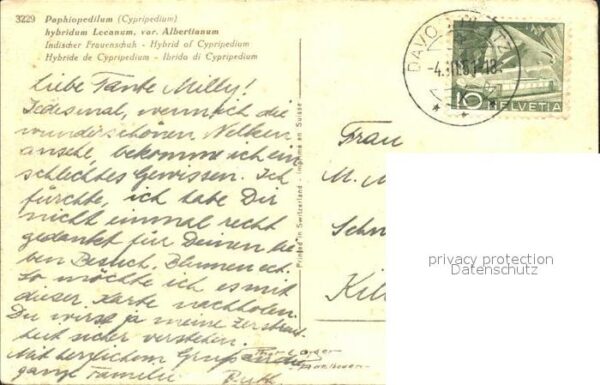 3229 Paphiopedilum (Cypripedium)
hybridum Lecanum, var. Albertianum
Indischer Frauenschuh - Hybrid of Cypripedium
Hybride de Cypripedium - Ibrido di Cypripedium
Liebe Tante Milly!
Jedesmal, wenn ich die
wunderschönen Nelken
ansehe, bekomme ich ein
schlechtes Gewissen. Ich
fürchte, ich habe Dir
nicht einmal recht
gedankt für Deinen lie
ben Besuch, Blumen ect.
So möchte ich es mit
dieser Karte nachholen.
Du wirst ja meine Zerstreut
heit sicher verstehen.
Mit herzlichem Gruss an die
ganze Familie Ruth
Printed in Switzerland - Imprimé en Suisse
DAVOS PLATZ
10 HELVETIA
Frau
M. M
Schn
Kil
privacy protection
Datenschutz